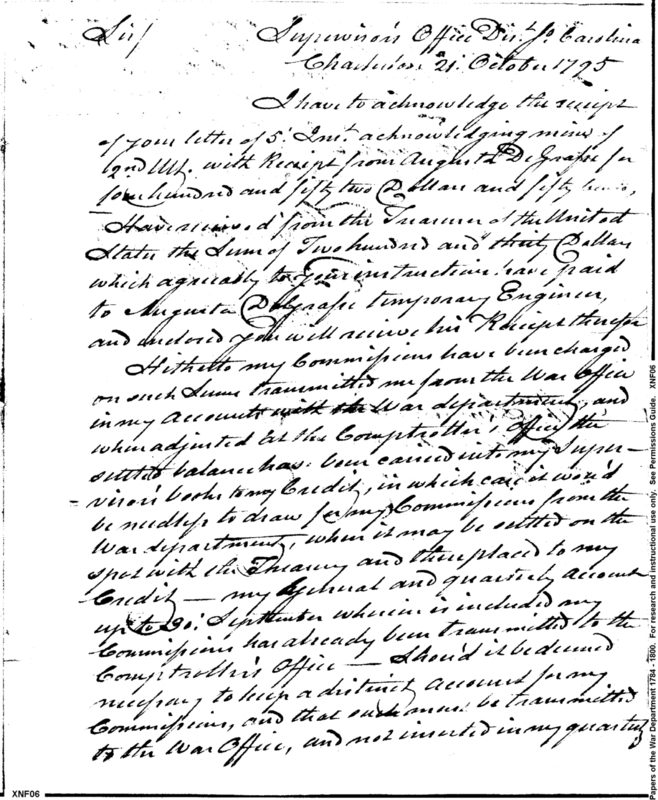 Sir/ Supervisor's Office Dist. So. Carolina
Charleston 21. October 1795
I have to acknowledge the receipt
of your letter of 5. Inst. acknowledging mine of
22nd Ult. with Receipt from Augusta DeGrasse for
four hundred and fifty two Dollars and fifty
Have received from the Treasurer of the United
States the Sum of Two hundred and thirty Dollars
which agreeably to your instructions have paid
to Augusta DeGrasse temporary Engineer,
and enclosed you will receive his Receipt therefor
Hitherto my Commissions have been charged
on such Sums transmitted me from the War Office
in my Accounts with the War department, and
when adjusted at the Comptroller's Office, the
settled balance has been carried into my Super-
visor's books to my Credit, in which case it wou'd
be needless to draw for my Commissions from the
War department, when it may be settled on the
spot with the Treasury and then placed to my
Credit — my General and quarterly Account
up to 30. September wherein is included my
Commissions has already been transmitted to the
Comptroller's Office — Shou'd it be deemed
necessary to keep a distinct Account for my
Commissions, and that such must be transmitted
to the War Office, and not inserted in my quarterly
XNF06
Papers of the War Department 1784 - 1800. For research and instructional use only. See Permissions Guide. XNF06